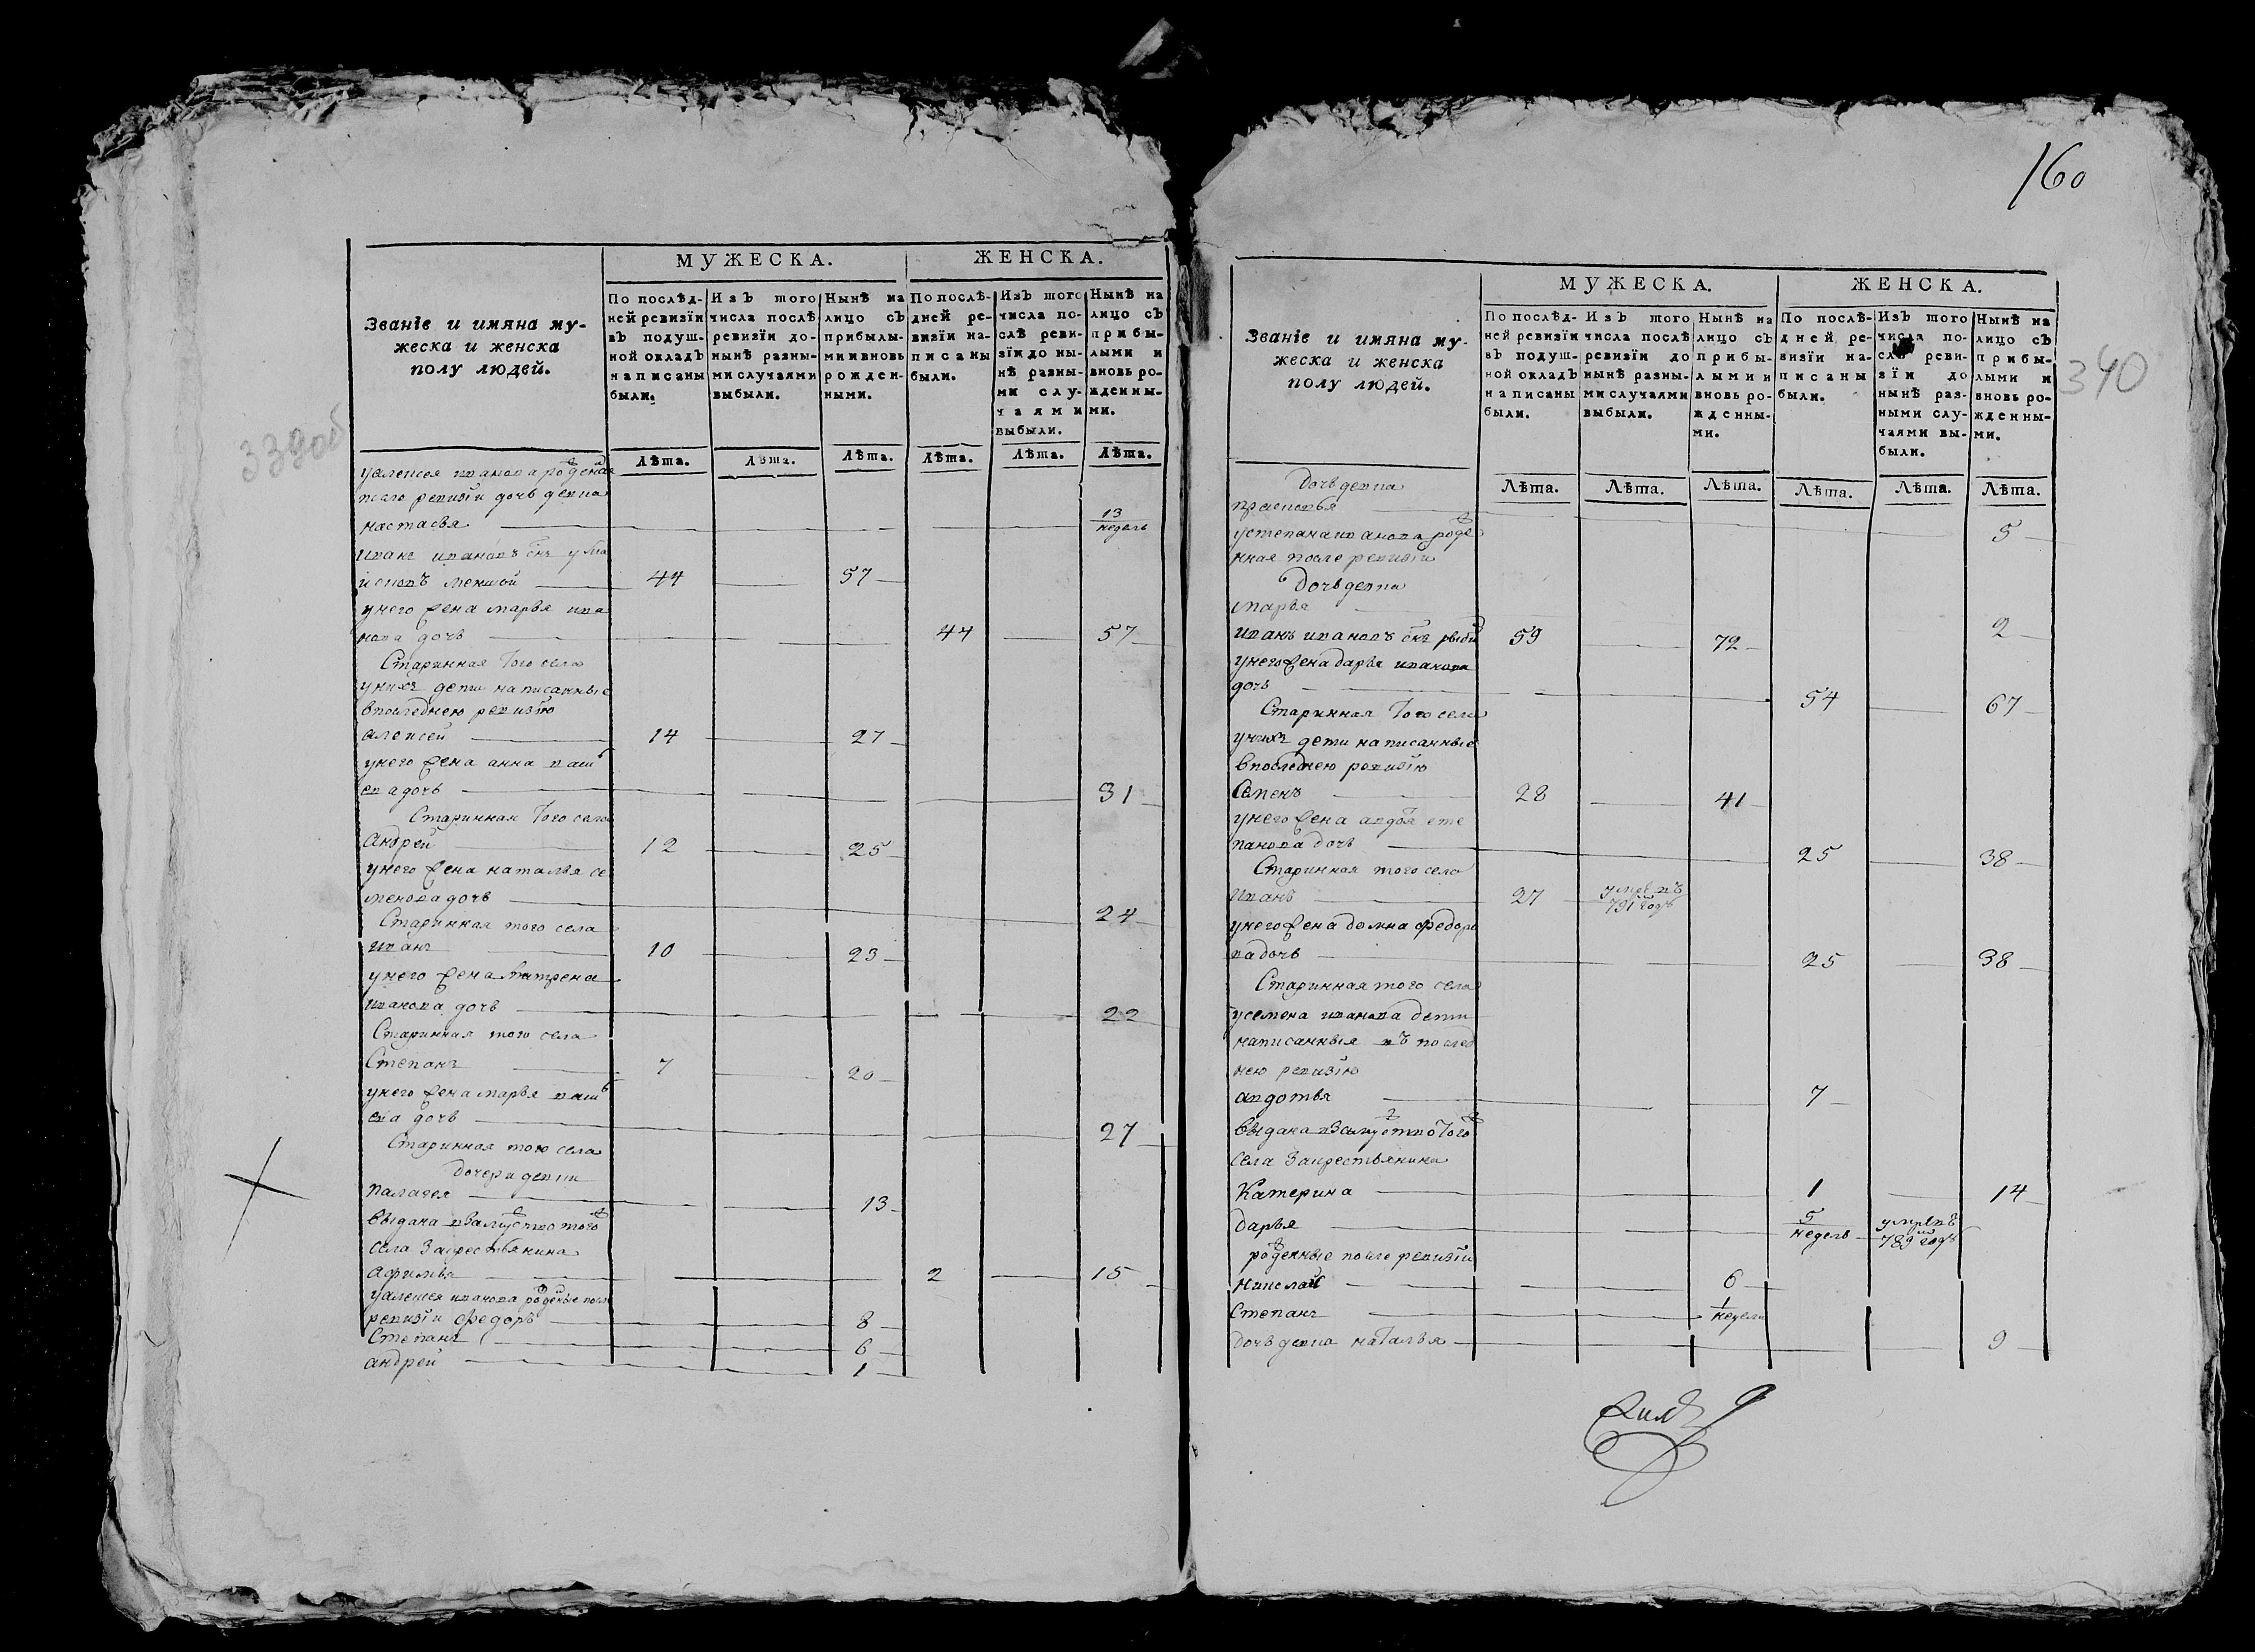 160
339об
340
МУЖЕСКА.
ЖЕНСКА.
Званіе и имяна му-
жеска и женска
полу людей.
По послѣд-
ней ревизіи
въ подуш-
ной окладъ
написаны
были.
Изъ того
числа послѣ
ревизіи до-
нынѣ разны-
ми случаями
выбыли.
Нынѣ на
лицо съ
прибылы-
ми и вновь
рожден-
ными.
По послѣ-
дней ре-
визіи на-
писаны
были.
Изъ того
числа по-
слѣ реви-
зіи до ны-
нѣ разны-
ми слу-
чаями
выбыли.
Нынѣ на
лицо съ
прибы-
лыми и
вновь ро-
жденны-
ми.
Лѣта. Лѣта. Лѣта. Лѣта. Лѣта. Лѣта.
уалексея иванова роденая
после ревизіи дочь девка
настасья 13 недель
Иванъ ивановъ снъ
меншой 44 57
унего жена марья ива
нова дочь 44 57
Старинная того села
унихъ дети написанные
впоследнею ревизію
алексей 14 27
унего жена анна василь
ева дочь 31
Старинная того села
Андрей 12 25
унего жена наталья се
менова дочь 24
Старинная того села
иванъ 10 23
унего жена матрена
иванова дочь 22
Старинная того села
Степанъ 7 20
унего жена марья василь
ева дочь 27
Старинная того села
дочери девки
палагея 13
выдана взамуство того
села закрестьянина
афимья 2 15
уалексея иванова роденые после
ревизіи федоръ 8
Степанъ 6
андрей 1
МУЖЕСКА.
ЖЕНСКА.
Званіе и имяна му-
жеска и женска
полу людей.
По послѣд-
ней ревизіи
въ подуш-
ной окладъ
написаны
были.
Изъ того
числа послѣ
ревизіи до
нынѣ разны-
ми случаями
выбыли.
Нынѣ на
лицо съ
прибы-
лыми и
вновь ро-
жденны-
ми.
По послѣ-
дней ре-
визіи на-
писаны
были.
Изъ того
числа по-
слѣ реви-
зіи до
нынѣ раз-
ными слу-
чаями вы-
были.
Нынѣ на
лицо съ
прибы-
лыми и
вновь ро-
жденны-
ми.
Лѣта. Лѣта. Лѣта. Лѣта. Лѣта. Лѣта.
Дочь девка
прасковья 5
устепана иванова роде
ная после ревизіи
Дочь девка
марья 2
иванъ ивановъ снъ 59 72
унего жена дарья иванова
дочь 54 67
Старинная того села
унихъ дети написанные
впоследнею ревизію
Семенъ 28 41
унего жена авдотя сте
панова дочь 25 38
Старинная того села
Иванъ 27 умре въ 791 годъ
унего жена домна федоро
ва дочь 25 38
Старинная того села
усемена иванова дети
написанныя въ послед
нею ревизію
авдотья 7
выдана взамуство того
села закрестьянина
Катерина 1 14
дарья 5 недель умре въ 789 годъ
роденные после ревизіи
николай 6
Степанъ 1 недели
дочь девка наталья 9